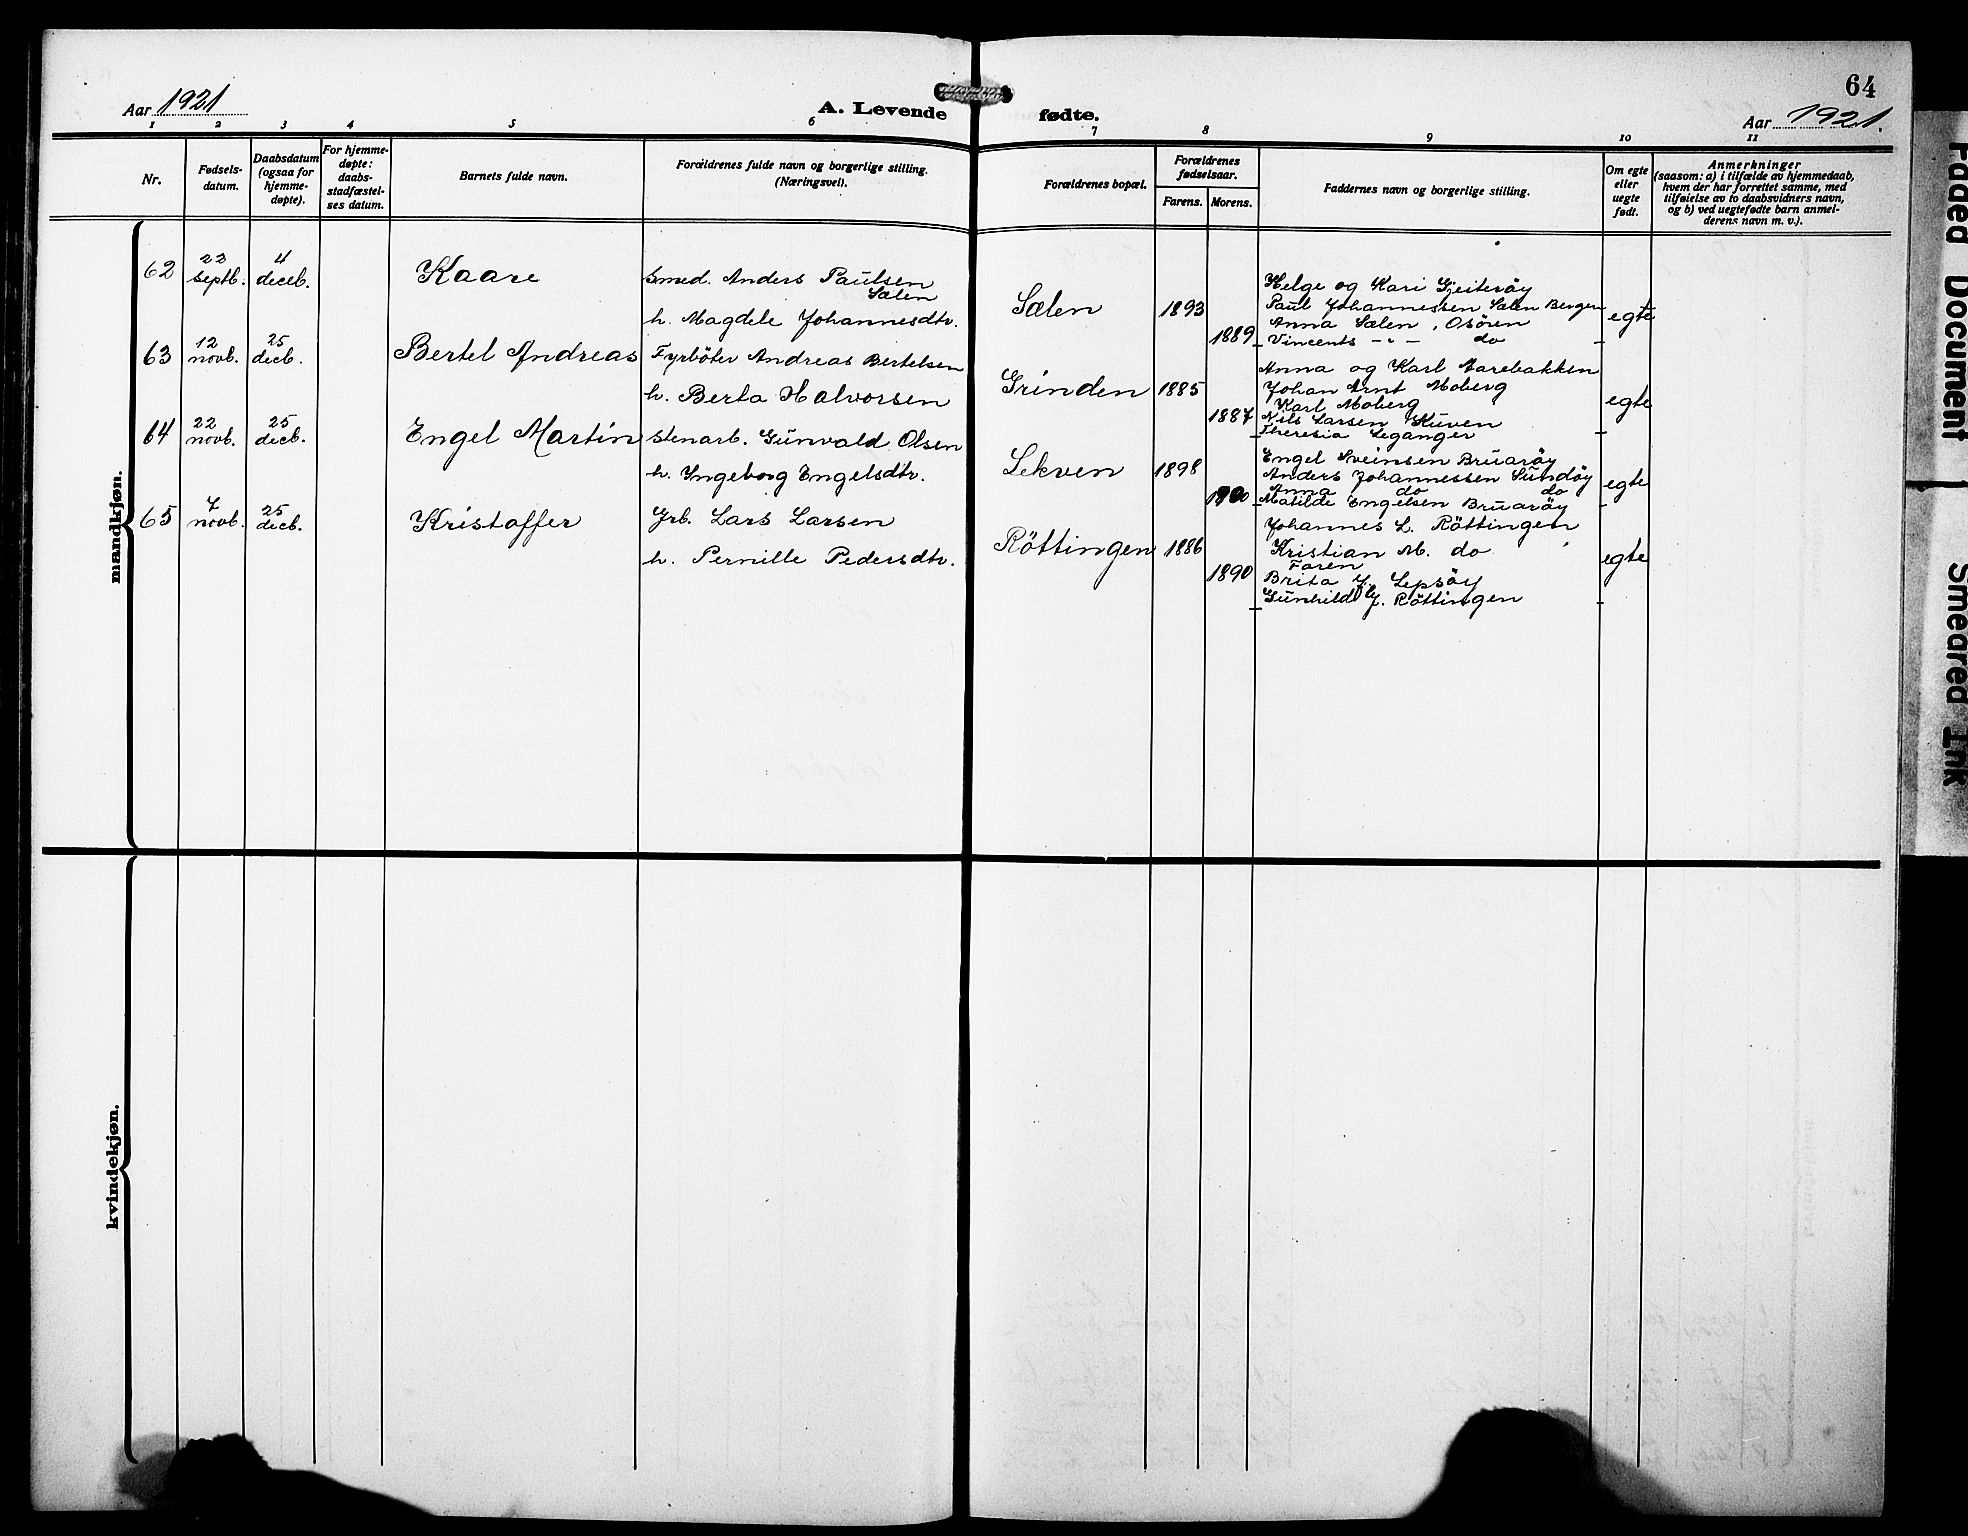 64
Aar 1921
A. Levende fødte.
Aar 1921.
1 2 3 4 5 6 7 8 9 10 11
Nr.
Fødsels-
datum.
Daabsdatum
(ogsaa for
hjemme-
døpte).
For hjemme-
døpte:
daabs-
stadfæstel-
ses datum.
Barnets fulde navn.
Forældrenes fulde navn og borgerlige stilling.
(Næringsvei).
Forældrenes bopæl.
Forældrenes
fødselsaar.
Farens. Morens.
Faddernes navn og borgerlige stilling.
Om egte
eller
uegte
født.
Anmerkninger
(saasom: a) i tilfælde av hjemmedaab,
hvem der har forrettet samme, med
tilføielse av to daabsvidners navn,
og b) ved uegtefødte barn anmel-
derens navn m. v.).
mandkjøn.
62
22
septb.
4
deceb.
Kaare
Smed. Anders Paulsen
Sælen
h. Magdele Johannesdtr.
Sælen
1893
1889
Helge og Kari Gjeiteröy
Paul Johannessen Sælen Bergen
Anna Sælen, Osören
Vincents - " - do
egte
63
12
novb.
25
decb.
Bertel Andreas
Fyrböter Andreas Bertelsen
h. Berta Halvorsen
Grinden
1885
1887
Anna og Karl Marebakken
Johan Arnt Moberg
Karl Moberg
Nils Larsen Kuven
Theresia Leganger
egte
64
22
novb.
25
decb.
Engel Martin
Stenarb. Gunvald Olsen
h. Ingeborg Engelsdtr.
Lekven
1898
1900
Engel Sveinsen Bruaröy
Anders Johannessen Sundöy
Anna do do
Matilde Engelsen Bruaröy
egte
65
7
novb.
25
decb.
Kristoffer
Grb. Lars Larsen
h. Pernille Pedersdtr.
Röttingen
1886
1890
Johannes L. Röttingen
Kristian M. do
Faren
Brita J. Lepsöy
Gunhild J. Röttingen
egte
kvindekjøn.
Faded Document
Smeared Ink